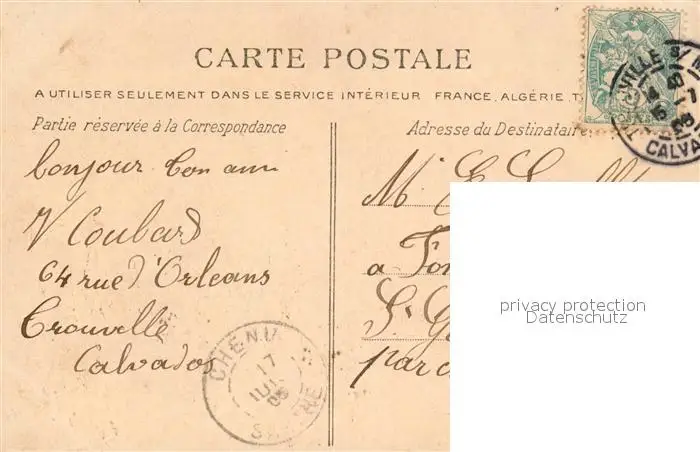 CARTE POSTALE
A UTILISER SEULEMENT DANS LE SERVICE INTÉRIEUR FRANCE, ALGÉRIE
Partie réservée à la Correspondance
bonjour bon ami
V Coubard
64 rue d'Orleans
Trouville
Calvados
CHENU
17
JUIL
05
Adresse du Destinataire
M. E.
a Fon
St. G
par
VILLE S/ M
CALVA
privacy protection
Datenschutz